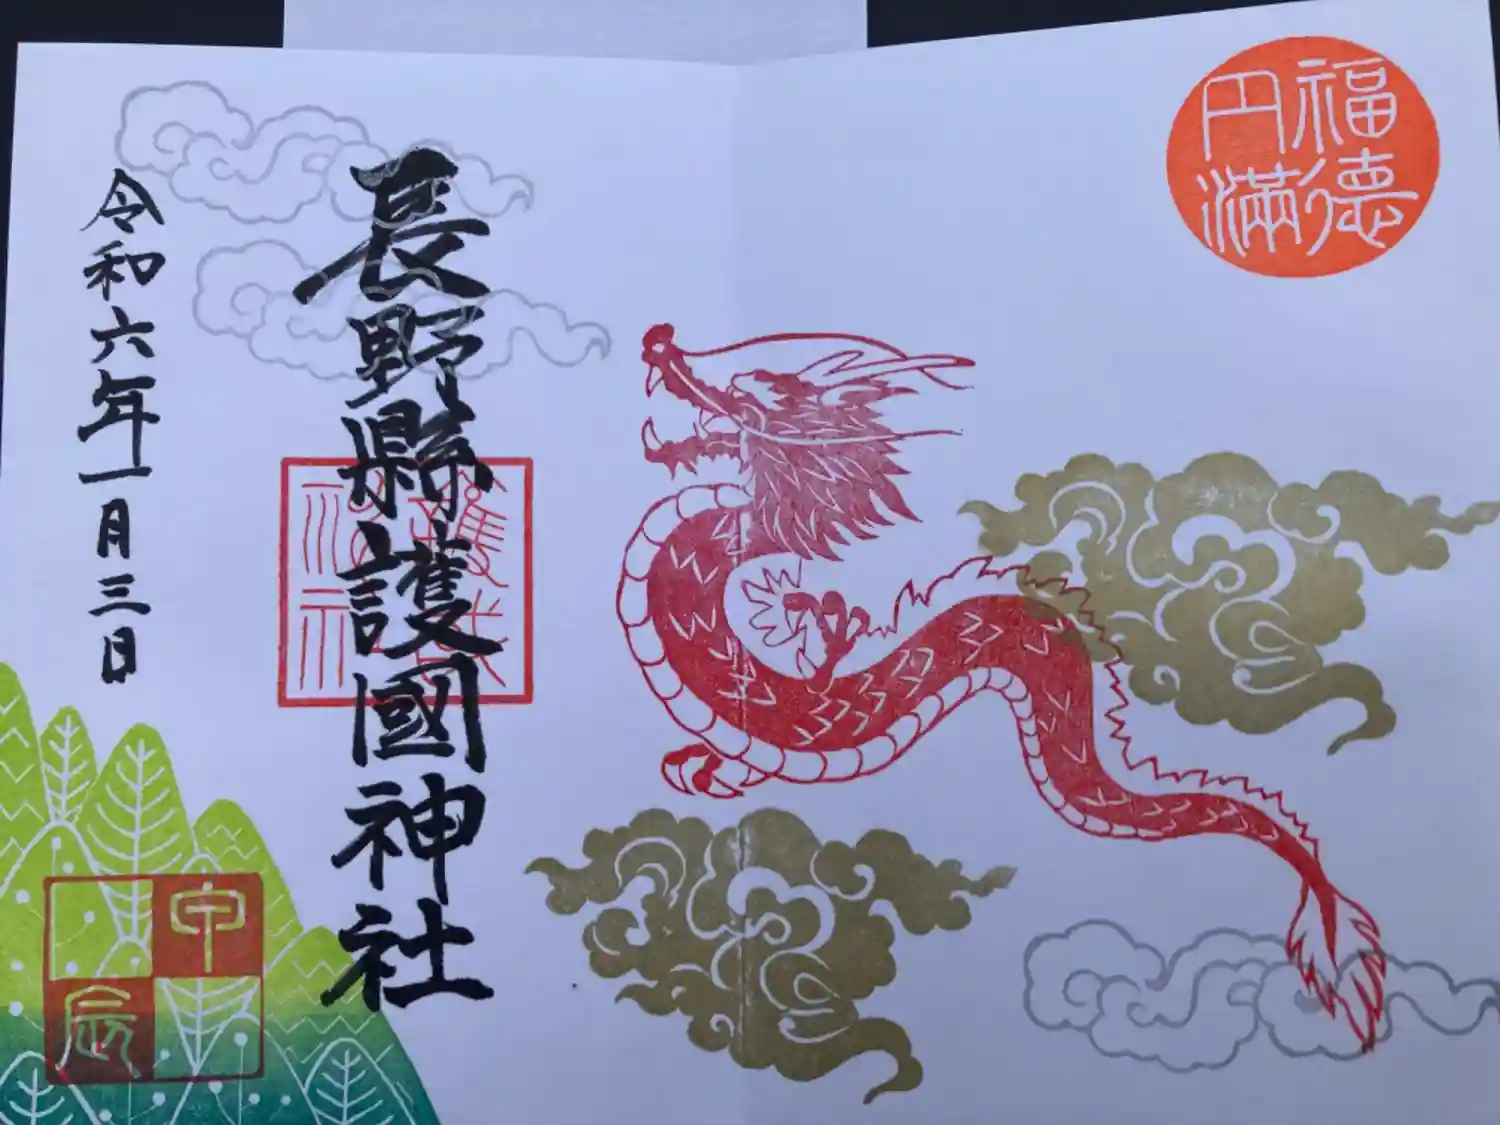 福德
円満
長野縣護國神社
令和六年一月三日
甲
辰